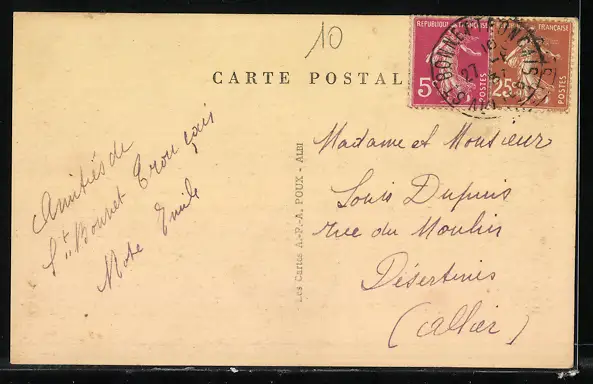 10
CARTE POSTAL
REPUBLIQUE FRANÇAISE
5c
POSTES
FRANÇAISE
25c
POSTES
Amitiés de
St Bonnet Tronçais
Emile
Les Cartes A.-P.-A. POUX - ALBI
Madame et Monsieur
Louis Dupuis
rue du Moulin
Désertines
(Allier)